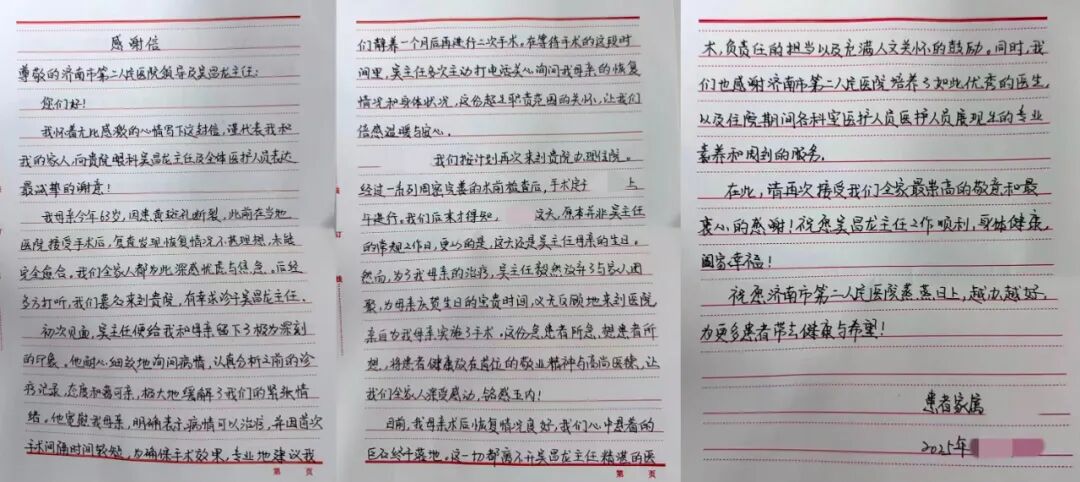 感谢信
尊敬的济南市第二人民医院领导及吴昌龙主任:
您们好!
我怀着无比感激的心情写下这封信,谨代表我和
我的家人,向贵院眼科吴昌龙主任及全体医护人员表达
最诚挚的谢意!
我母亲今年63岁,因患黄斑裂孔,此前在当地
医院接受手术后,复查发现恢复情况不甚理想,未能
完全愈合。我们全家人都为此深感忧虑与焦急。后经
多方打听,我们慕名来到贵院,有幸求诊于吴昌龙主任。
初次见面,吴主任便给我和母亲留下了极为深刻
的印象。他耐心细致地询问病情,认真分析之前的诊
疗记录,态度和蔼可亲,极大地缓解了我们的紧张情
绪。他宽慰我母亲,明确表示病情可以治疗,并因首次
手术间隔时间较短,为确保手术效果,专业地建议我
第 页
们静养一个月后再进行二次手术。在等待手术的这段时
间里,吴主任多次主动打电话关心询问我母亲的恢复
情况和身体状况,这份超越职责范围的关怀,让我们
倍感温暖与安心。
我们按计划再次来到贵院办理住院。
经过一系列周密完善的术前检查后,手术定于 上
午进行。我们后来才得知, 这天,原本并非吴主任
的常规工作日,更巧的是,这天还是吴主任母亲的生日。
然而,为了我母亲的治疗,吴主任毅然放弃了与家人团
聚,为母亲庆贺生日的宝贵时间,义无反顾地来到医院,
亲自为我母亲实施了手术。这份急患者所急,想患者所
想,将患者健康放在首位的敬业精神与高尚医德,让
我们全家人深受感动,铭感五内!
目前,我母亲术后恢复情况良好,我们心中悬着的
巨石终于落地。这一切都离不开吴昌龙主任精湛的医
第 页
术,负责任的担当以及充满人文关怀的鼓励。同时,我
们也感谢济南市第二人民医院培养了如此优秀的医生,
以及住院期间各科室医护人员医护人员展现出的专业
素养和周到的服务。
在此,请再次接受我们全家最崇高的敬意和最
衷心的感谢!祝愿吴昌龙主任工作顺利,身体健康,
阖家幸福!
祝愿济南市第二人民医院蒸蒸日上,越办越好,
为更多患者带去健康与希望!
患者家属
2025年